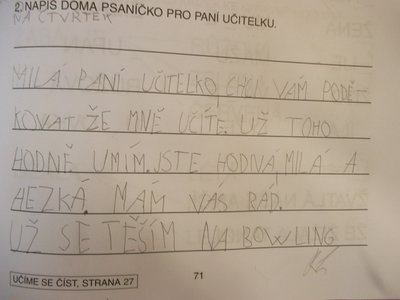 2. NAPIŠ DOMA PSANÍČKO PRO PANÍ UČITELKU.
NA ČTVRTEK
MILÁ PANÍ UČITELKO, CHCI VÁM PODĚ-
KOVAT ŽE MNĚ UČÍTE. UŽ TOHO
HODNĚ UMÍM. JSTE HODNÁ, MILÁ A
HEZKÁ. MÁM VÁS RÁD.
UŽ SE TĚŠÍM NA BOWLING
UČÍME SE ČÍST, STRANA 27
71